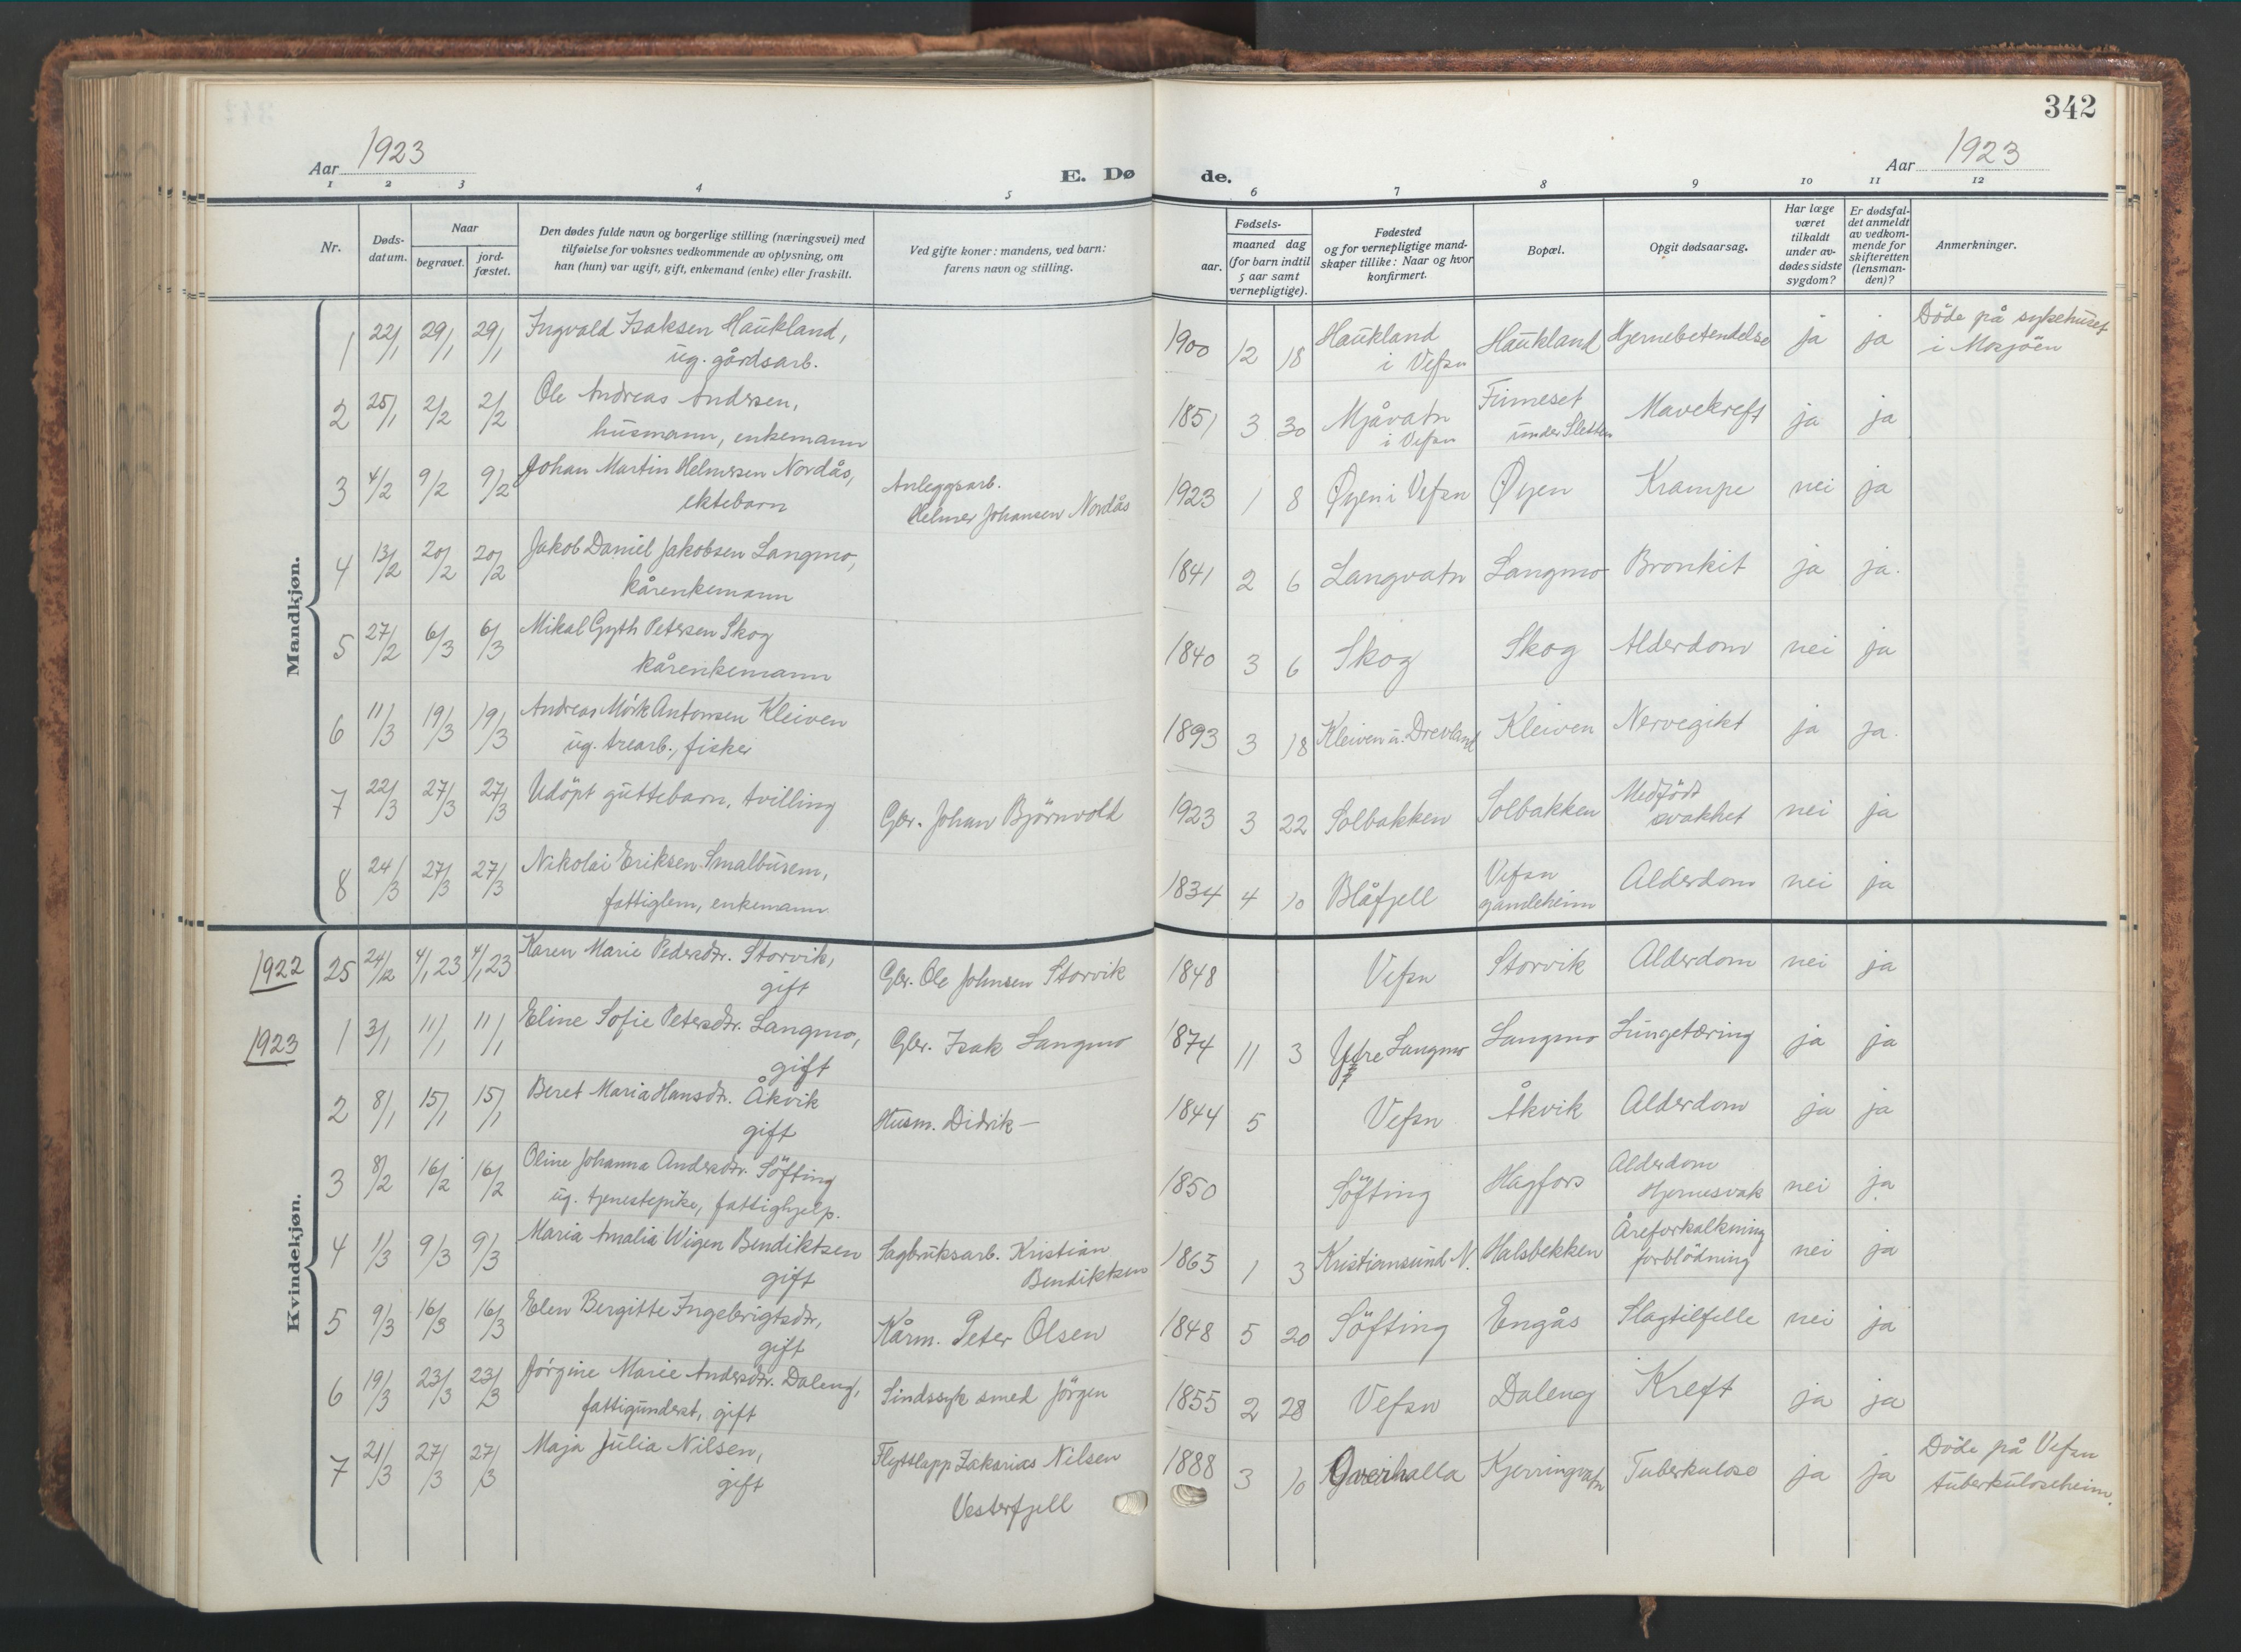 342
Aar 1923
E. Dø
de.
Aar 1923
1 2 3 4 5 6 7 8 9 10 11 12
Nr.
Døds-
datum.
Naar
begravet.
jord-
fæstet.
Den dødes fulde navn og borgerlige stilling (næringsvei) med
tilføielse for voksnes vedkommende av oplysning, om
han (hun) var ugift, gift, enkemand (enke) eller fraskilt.
Ved gifte koner: mandens, ved barn:
farens navn og stilling.
Fødsels-
aar.
maaned dag
(for barn indtil
5 aar samt
vernepligtige).
Fødested
og for vernepligtige mand-
skaper tillike: Naar og hvor
konfirmert.
Bopæl.
Opgit dødsaarsag.
Har læge
været
tilkaldt
under av-
dødes sidste
sygdom?
Er dødsfal-
det anmeldt
av vedkom-
mende for
skifteretten
(lensman-
den)?
Anmerkninger.
Mandkjøn.
1 22/1 29/1 29/1 Ingvald Isaksen Haukland,
ug. gårdsarb.
1900 12 18 Haukland
i Vefsn
Haukland Hjernebetendelse ja ja Döde på sykehuset
i Mosjöen
2 25/1 2/2 2/2 Ole Andreas Andersen,
husmann, enkemann
1851 3 30 Mjåvatn
i Vefsn
Finneset
under Sletten
Mavekreft ja ja
3 4/2 9/2 9/2 Johan Martin Helmersen Nordås,
ektebarn
Anleggsarb.
Helmer Johansen Nordås
1923 1 8 Øyen i Vefsn Øyen Krampe nei ja
4 13/2 20/2 20/2 Jakob Daniel Jakobsen Langmo,
kårenkemann
1841 2 6 Langvatn Langmo Bronkit ja ja.
5 27/2 6/3 6/3 Mikal Gyth Petersen Skog
kårenkemann
1840 3 6 Skog Skog Alderdom nei ja
6 11/3 19/3 19/3 Andreas Mörk Antonsen Kleiven
ug. trearb., fisker
1893 3 18 Kleiven u. Drevland Kleiven Nervegikt ja ja.
7 22/3 27/3 27/3 Udöpt guttebarn, tvilling
Gbr. Johan Björnvold
1923 3 22 Solbakken Solbakken Medfödt
svakhet
nei ja
8 24/3 27/3 27/3 Nikolai Eriksen Smalbusem,
fattiglem, enkemann
1834 4 10 Blåfjell Vefsn
gamleheim
Alderdom nei ja
Kvindekjøn.
1922 25 24/12 4/1 23 4/1 23 Karen Marie Pedersdtr. Storvik,
gift
Gbr. Ole Johnsen Storvik 1848 Vefsn Storvik Alderdom nei ja
1923 1 3/1 11/1 11/1 Eline Sofie Petersdtr. Langmo,
gift
Gbr. Isak Langmo 1874 11 3 Ytre Langmo Langmo Lungetæring ja ja
2 8/1 15/1 15/1 Beret Maria Hansdtr. Åkvik
gift
Husm. Didrik — 1844 5 Vefsn Åkvik Alderdom ja ja
3 8/2 16/2 16/2 Oline Johanna Andersdtr. Söfting
ug. tjenestepike, fattighjelp.
1850 Söfting Hagfors Alderdom
Hjernesvak
nei ja
4 1/3 9/3 9/3 Maria Amalia Wigen Bendiktsen
gift
Sagbruksarb. Kristian
Bendiktsen
1865 1 3 Kristiansund N. Halsbekken Åreforkalkning
forblödning
nei ja
5 9/3 16/3 16/3 Elen Bergitte Ingebrigtsdtr,
gift
Kårm. Peter Olsen 1848 5 20 Söfting Engås Slagtilfelle nei ja
6 19/3 23/3 23/3 Jörgine Marie Andersdtr. Daleng,
fattigunderst, gift
Sindssyk smed Jörgen 1855 2 28 Vefsn Daleng Kreft ja ja
7 21/3 27/3 27/3 Maja Julia Nilsen,
gift
Flyttlapp Zakarias Nilsen
Vesterfjell
1888 3 10 Overhalla Kjerringvatn Tuberkulose ja ja Döde på Vefsn
tuberkuloseheim.